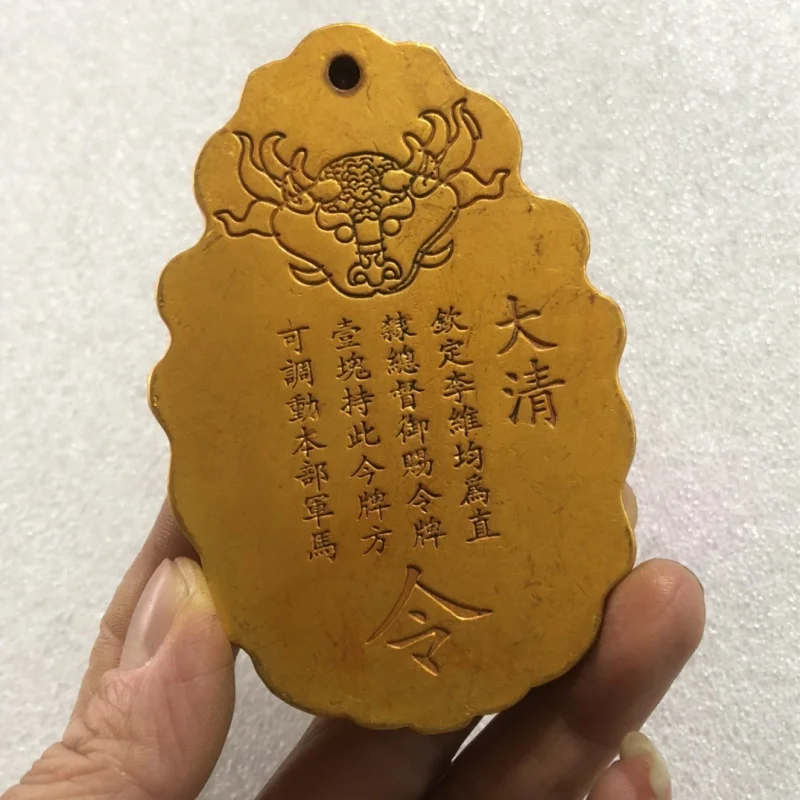 大清
欽定李維均爲直
隸總督御賜令牌
壹塊持此令牌方
可調動本部軍馬
令